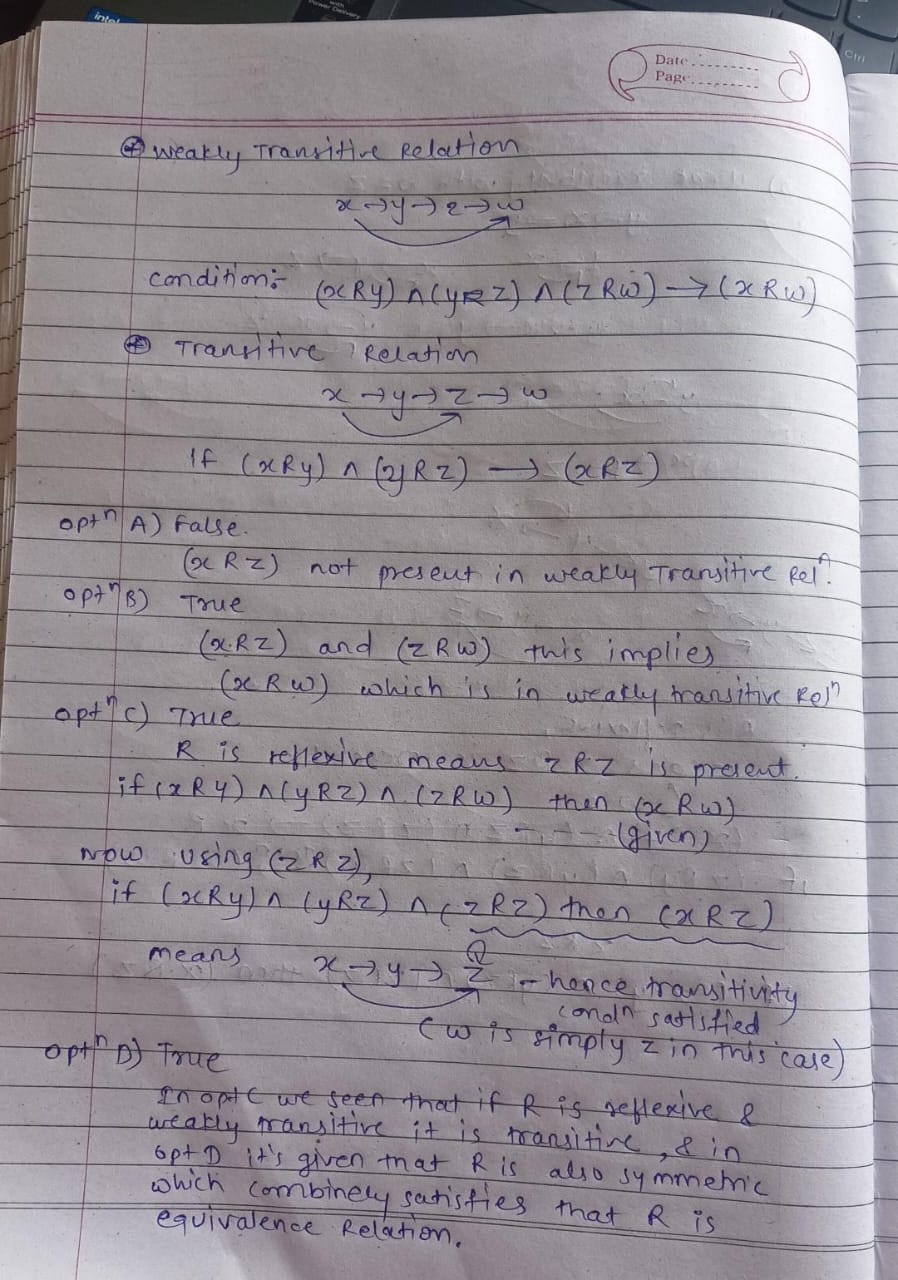 intel
with
Power Delivery
Ctrl
Date............
Page............
⊛ Weakly Transitive Relation
x→y→z→w
condition:- (xRy) ∧ (yRz) ∧ (zRw) → (xRw)
⊛ Transitive Relation
x→y→z→w
If (xRy) ∧ (yRz) → (xRz)
optⁿ A) False.
(xRz) not present in weakly Transitive Relⁿ.
optⁿ B) True
(xRz) and (zRw) this implies
(xRw) which is in weakly transitive Relⁿ
optⁿ C) True
R is reflexive means zRz is present.
if (xRy) ∧ (yRz) ∧ (zRw) then (xRw)
(given)
Now using (zRz),
if (xRy) ∧ (yRz) ∧ (zRz) then (xRz)
means x→y→z - hence transitivity
condⁿ satisfied
(w is simply z in this case)
optⁿ D) True
In opt C we seen that if R is reflexive &
weakly transitive it is transitive, & in
opt D it's given that R is also symmetric
which combinely satisfies that R is
equivalence Relation.